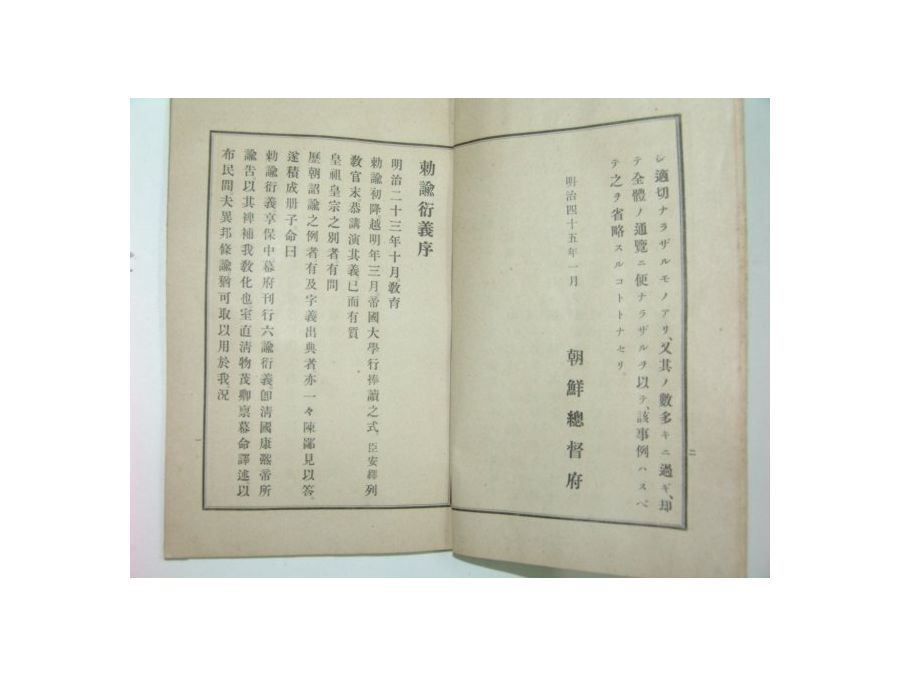 シ適切ナラザルモノアリ、又其ノ數多キニ過ギ、却
テ全體ノ通覽ニ便ナラザルヲ以テ、該事例ハスベ
テ之ヲ省略スルコトトナセリ。
明治四十五年一月
朝鮮總督府
二
勅諭衍義序
明治二十三年十月敎育
勅諭初降越明年三月帝國大學行捧讀之式、臣安繹列
敎官末恭講演其義已而有質
皇祖皇宗之別者有問
歷朝詔諭之例者有及字義出典者亦一々陳鄙見以答。
遂積成册子命曰
勅諭衍義享保中幕府刊行六諭衍義、卽淸國康熙帝所
諭告以其裨補我敎化也室直淸物茂卿禀幕命譯述以
布民間夫異邦條諭猶可取以用於我況
一